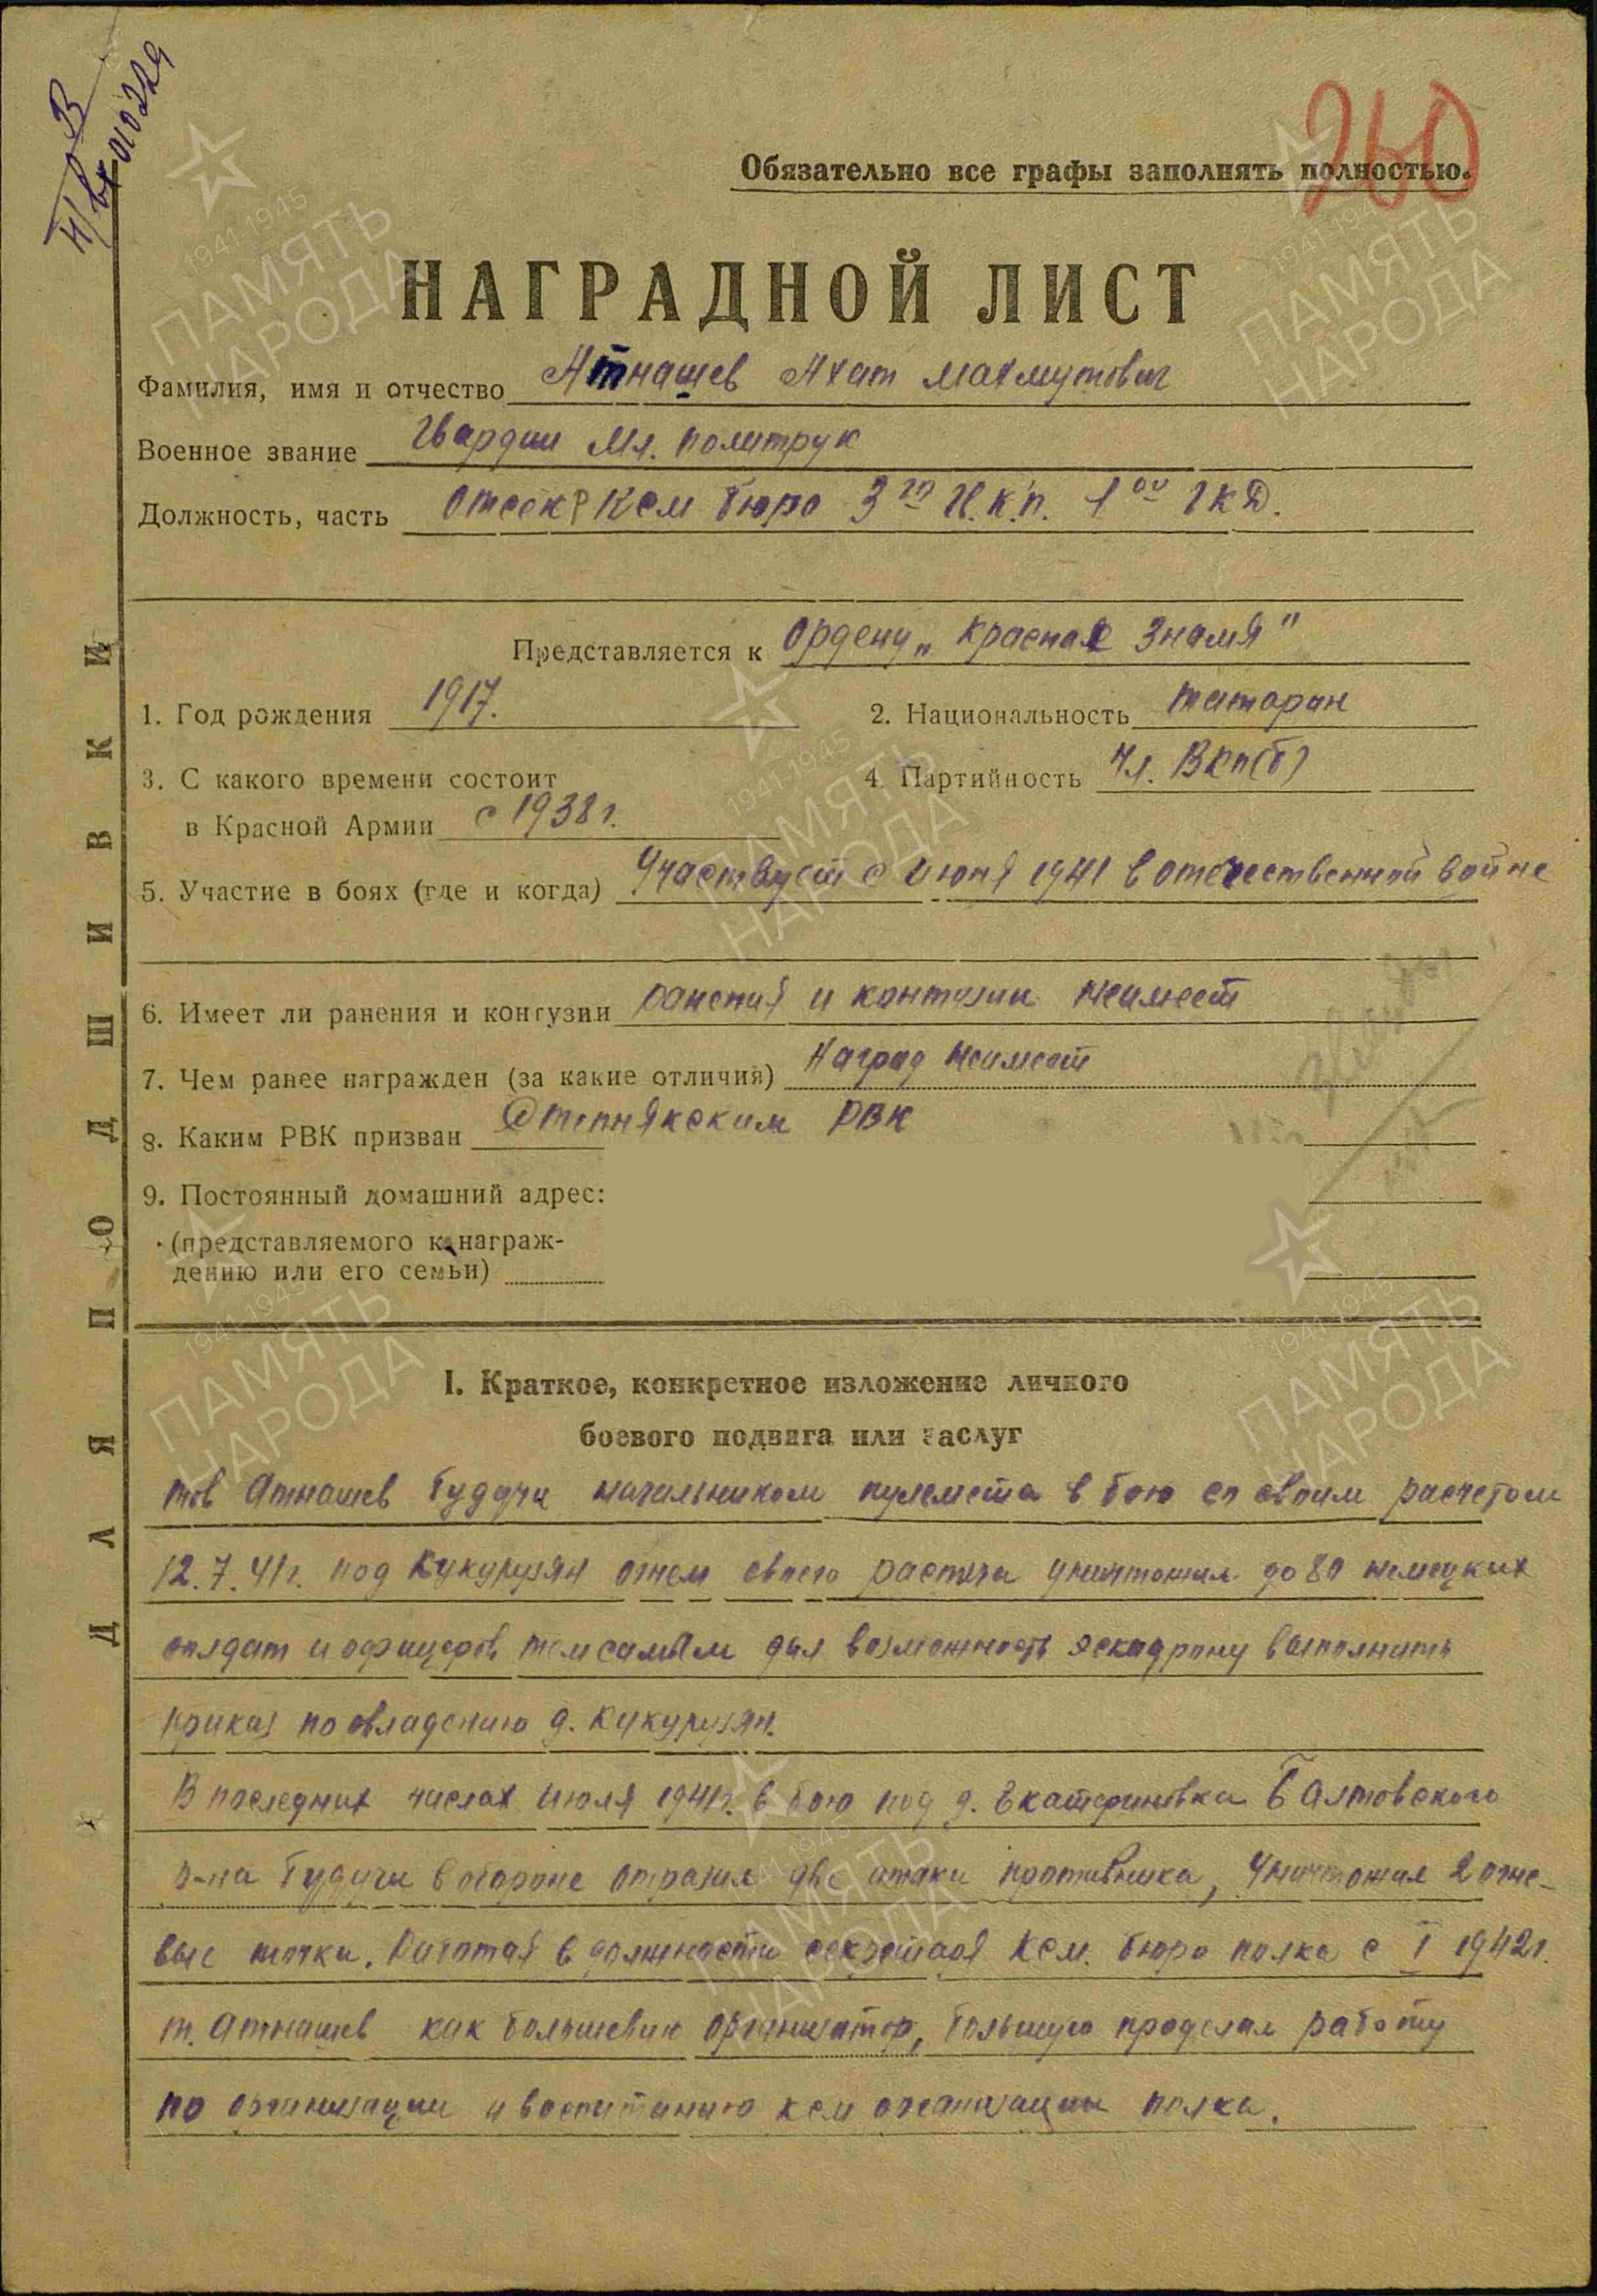 260
Н/вх 010229
Обязательно все графы заполнять полностью.
НАГРАДНОЙ ЛИСТ
Фамилия, имя и отчество Атнашев Ахат Махмутович
Военное звание Гвардии Мл. политрук
Должность, часть Отсекр Ксм бюро 3го Г.К.П. 1ой ГКД.
Представляется к Ордену „Красная Знамя"
1. Год рождения 1917. 2. Национальность татарин
3. С какого времени состоит
в Красной Армии с 1938 г.
4. Партийность Чл. ВКП(б)
5. Участие в боях (где и когда) Участвует с июня 1941 в отечественной войне
6. Имеет ли ранения и контузии ранения и контузии неимеет
7. Чем ранее награжден (за какие отличия) Наград неимеет
8. Каким РВК призван Степнякским РВК
9. Постоянный домашний адрес:
(представляемого к награж-
дению или его семьи)
ДЛЯ ПОДШИВКИ
I. Краткое, конкретное изложение личного
боевого подвига или заслуг
тов Атнашев будучи начальником пулемета в бою со своим расчетом
12.7.41г. под Кукурузян огнем своего расчета уничтожил до 80 немецких
солдат и офицеров темсамым дал возможность эскадрону выполнить
приказ по овладению д. Кукурузян.
В последних числах июля 1941г. в бою под д. Екатериновка Балтовского
р-на будучи в обороне отразил две атаки противника, уничтожил 2 огне-
вые точки. Работая в должности секретаря Ксм. бюро полка с I 1942г.
т. Атнашев как большевик организатор, большую проделал работу
по организации и воспитанию ксм организации полка.
1941-1945
ПАМЯТЬ
НАРОДА